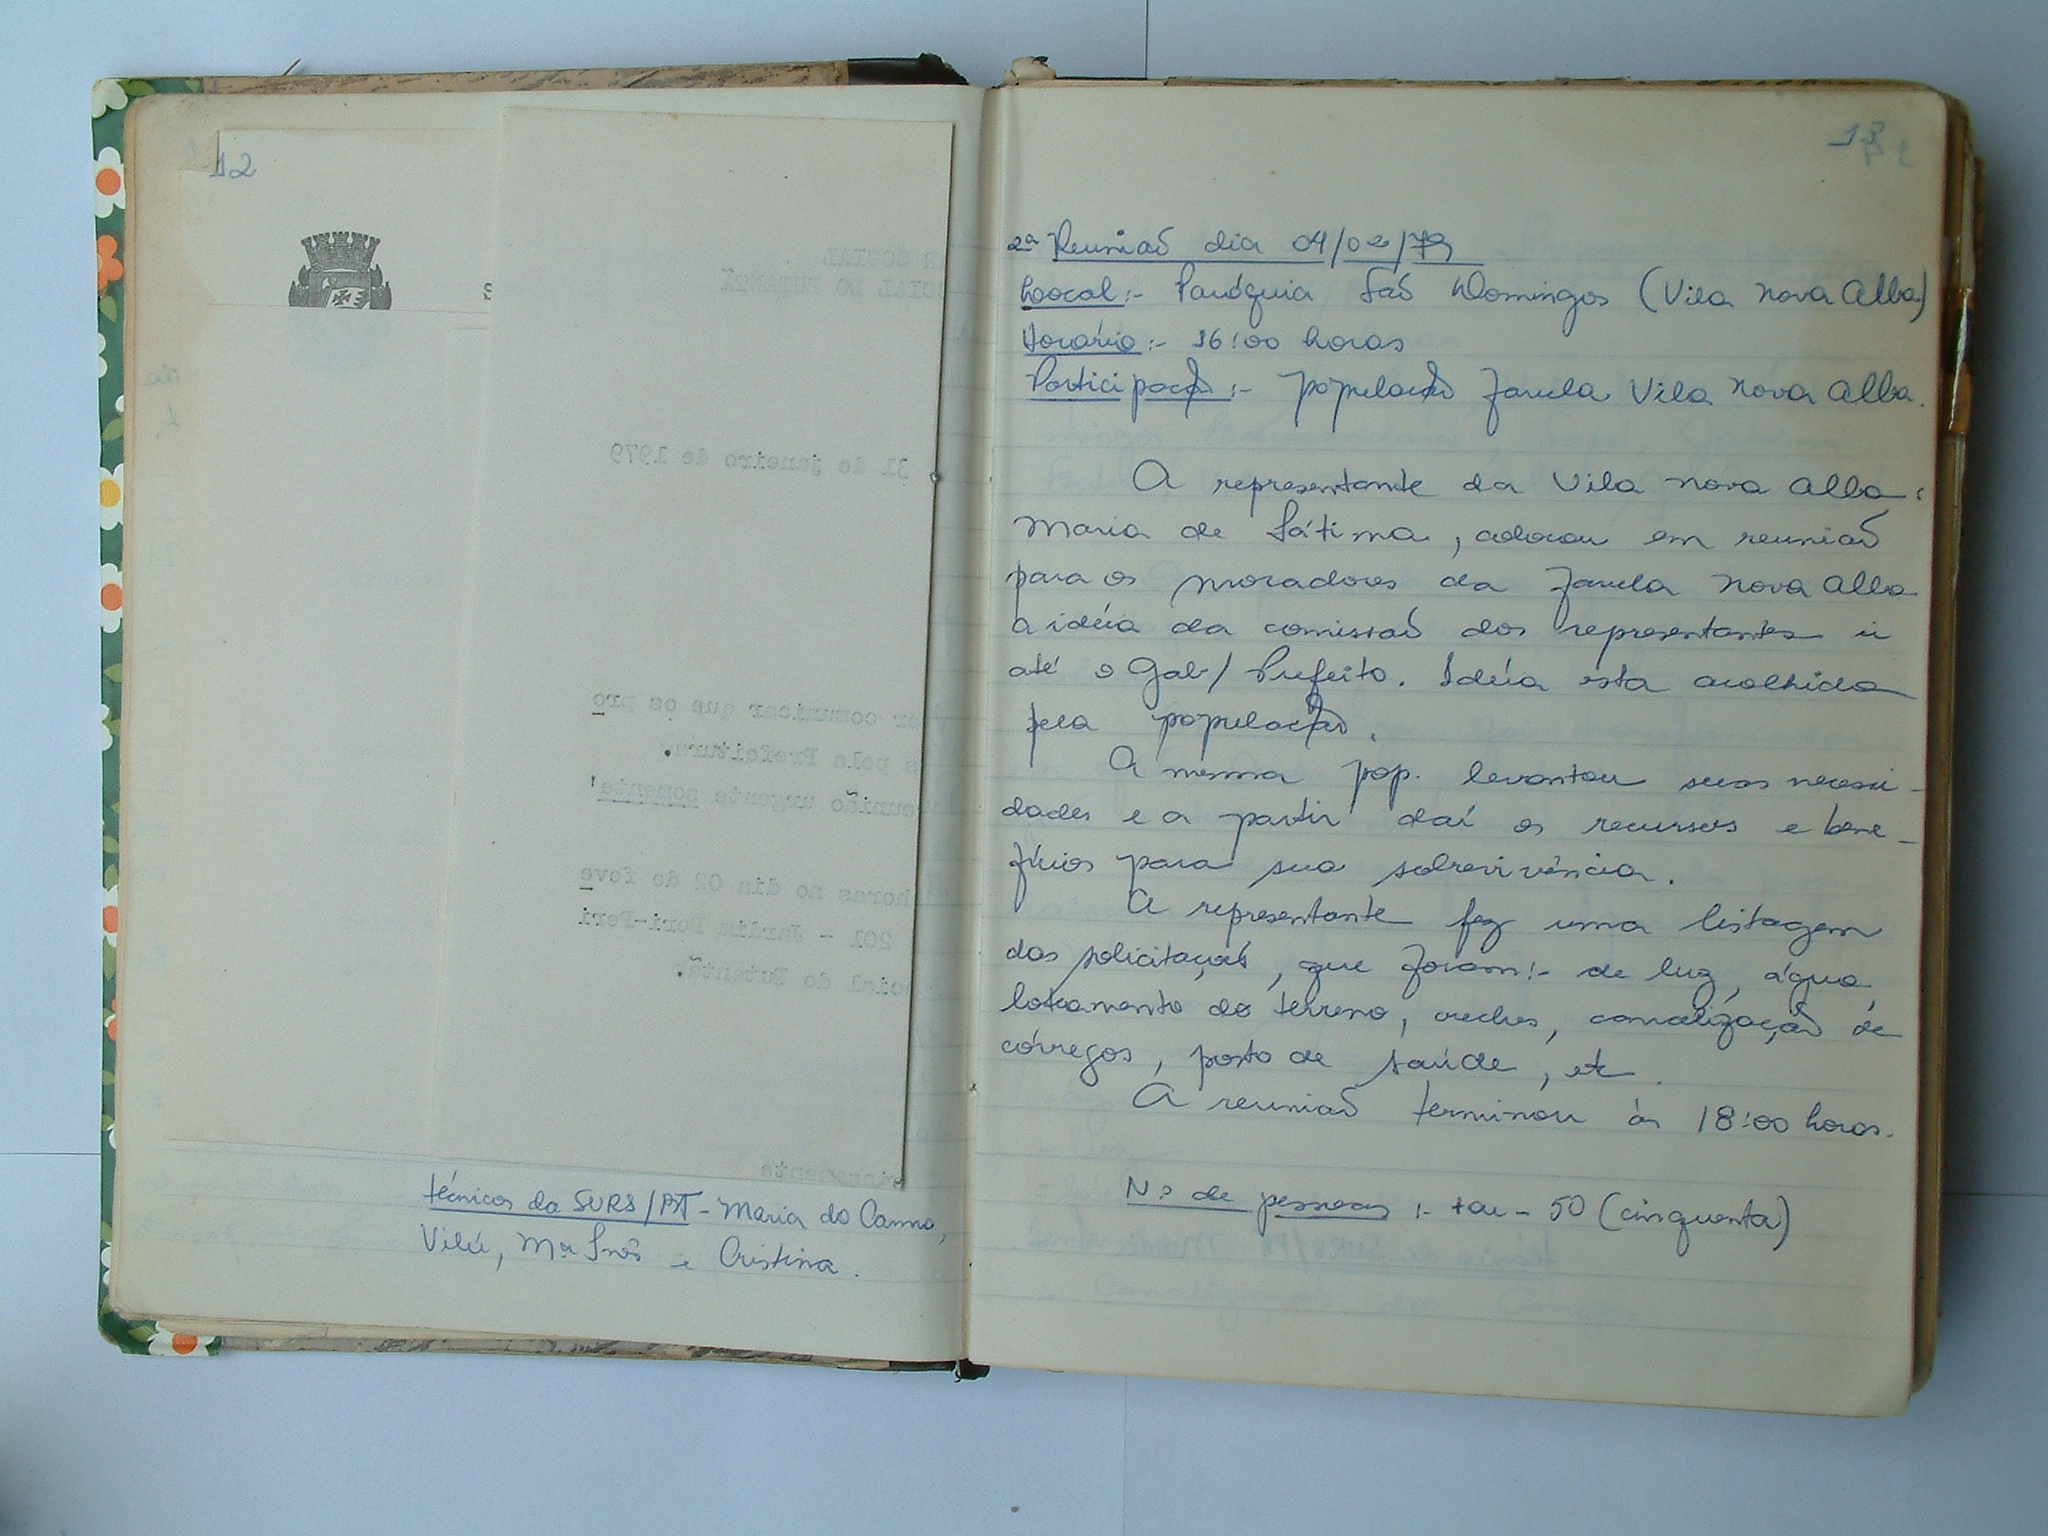 12
S
R SOCIAL
OCIAL DO BUTANTÃ
31 de janeiro de 1979
er comunicar que os pro
s pela Prefeitura.
eunião urgente somente'
horas no dia 02 de feve
201 - Jardim Peri-Peri
ocial do Butantã.
técnicos da SURS/BT - Maria do Carmo,
Vilú, Mª Inês e Cristina.
13
2ª Reunião dia 04/02/79
Loocal:- Paróquia São Domingos (Vila Nova Alba)
Horário:- 16:00 horas
Participação:- população favela Vila Nova Alba.
A representante da Vila Nova Alba:
Maria de Fátima, colocou em reunião
para os moradores da favela Nova Alba
a idéia da comissão dos representantes ir
até o Gab/ Prefeito. Idéia esta acolhida
pela população.
A mesma pop. levantou suas necessi-
dades e a partir daí os recursos e bene-
fícios para sua sobrevivência.
A representante fez uma listagem
das solicitações, que foram:- de luz, água,
loteamento do terreno, creches, canalização de
córregos, posto de saúde, etc.
A reunião terminou às 18:00 horas.
Nº de pessoas :- 50 (cinquenta)